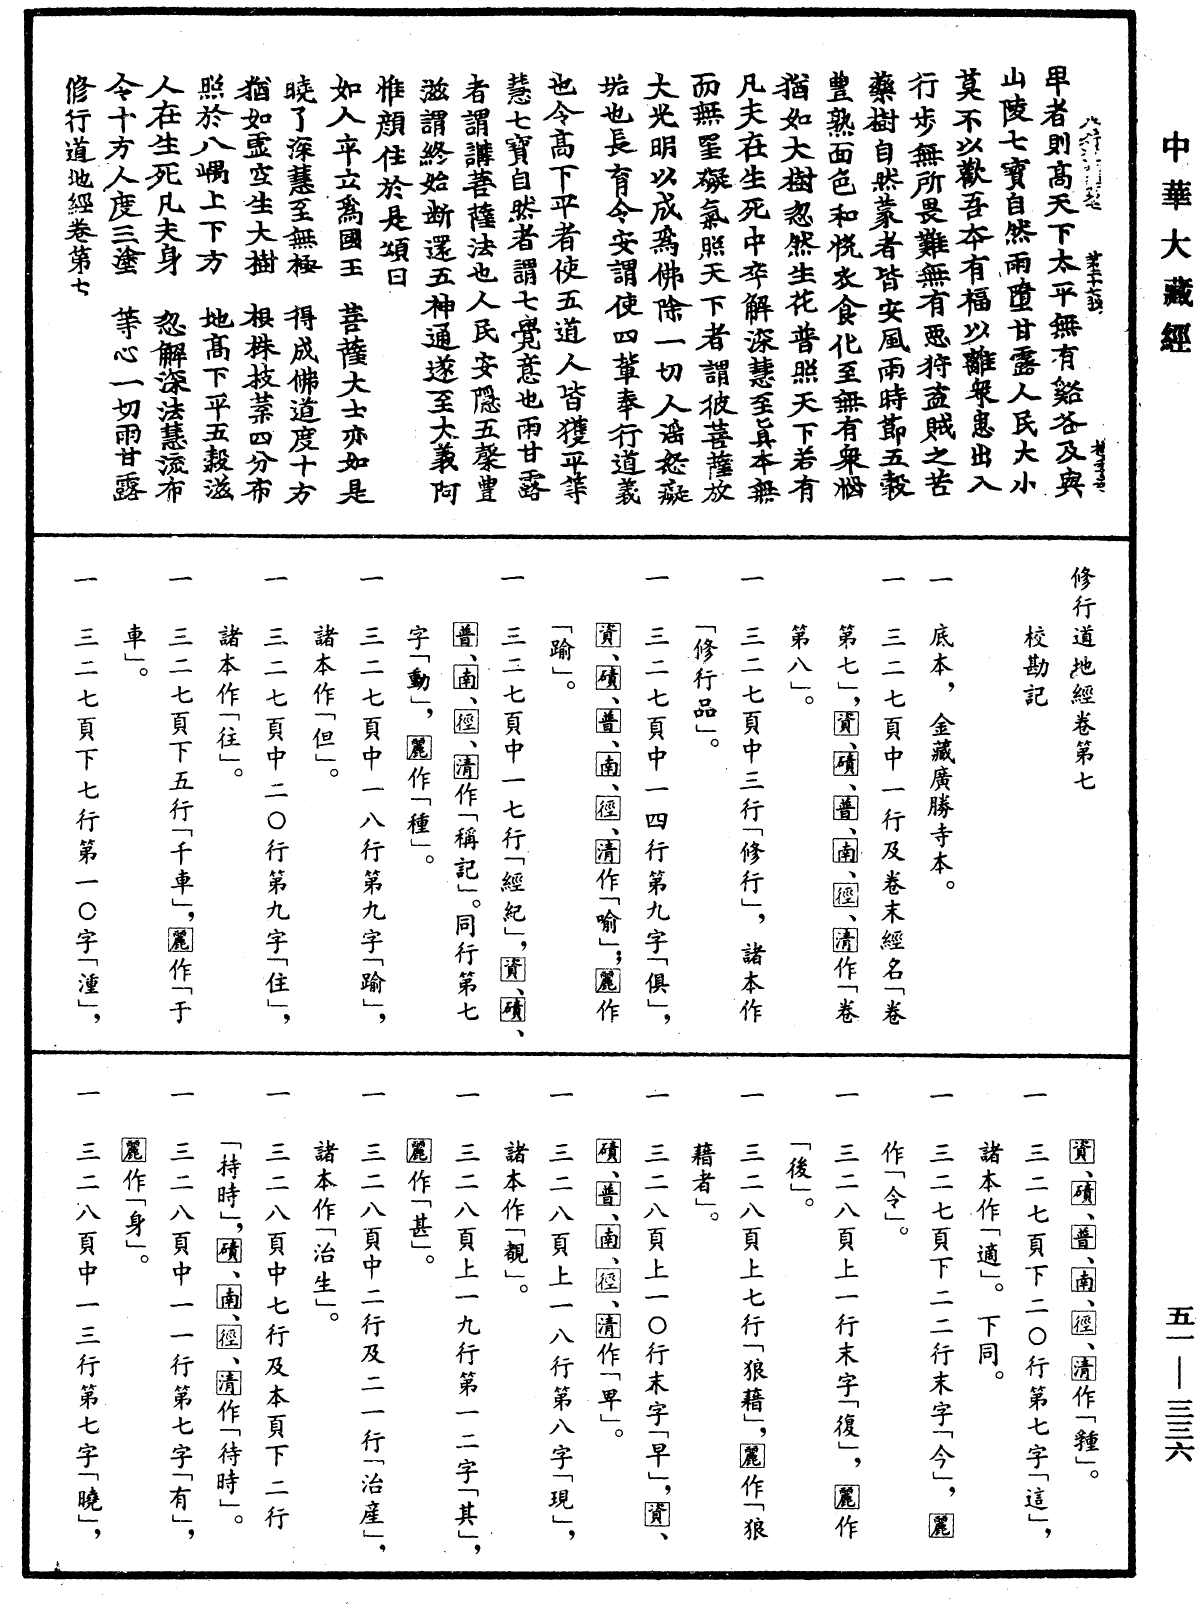 中華大藏經
早者則高天下太平無有谿谷及與
山陵七寶自然雨墮甘露人民大小
莫不以歡吾本有福以離衆患出入
行步無所畏難無有惡狩盜賊之苦
藥樹自然蒙者皆安風雨時節五穀
豐熟面色和悅衣食化至無有衆惱
猶如大樹忽然生花普照天下若有
凡夫在生死中卒解深慧至真本無
而無罣礙氣照天下者謂彼菩薩放
大光明以成爲佛除一切人婬怒癡
垢也長育令安謂使四輩奉行道義
也令高下平者使五道人皆獲平等
慧七寶自然者謂七覺意也雨甘露
者謂講菩薩法也人民安隱五穀豐
滋謂終始斷還五神通遂至大義阿
惟顏住於是頌曰
如人卒立爲國王　菩薩大士亦如是
曉了深慧至無極　得成佛道度十方
猶如虛空生大樹　根株技葉四分布
照於八嵎上下方　地高下平五穀滋
人在生死凡夫身　忽解深法慧流布
令十方人度三塗　等心一切雨甘露
修行道地經卷第七
修行道地經卷第七
校勘記
一　底本，金藏廣勝寺本。
一　三二七頁中一行及卷末經名「卷
第七」，資、磧、普、南、徑、清作「卷
第八」。
一　三二七頁中三行「修行」，諸本作
「修行品」。
一　三二七頁中一四行第九字「俱」，
資、磧、普、南、徑、清作「喻」；麗作
「踰」。
一　三二七頁中一七行「經紀」，資、磧、
普、南、徑、清作「稱記」。同行第七
字「動」，麗作「種」。
一　三二七頁中一八行第九字「踰」，
諸本作「但」。
一　三二七頁中二〇行第九字「住」，
諸本作「往」。
一　三二七頁下五行「千車」，麗作「于
車」。
一　三二七頁下七行第一〇字「湩」，
資、磧、普、南、徑、清作「種」。
一　三二七頁下二〇行第七字「這」，
諸本作「適」。下同。
一　三二七頁下二二行末字「今」，麗
作「令」。
一　三二八頁上一行末字「復」，麗作
「後」。
一　三二八頁上七行「狼藉」，麗作「狼
藉者」。
一　三二八頁上一〇行末字「早」，資、
磧、普、南、徑、清作「卑」。
一　三二八頁上一八行第八字「現」，
諸本作「覩」。
一　三二八頁上一九行第一二字「其」，
麗作「甚」。
一　三二八頁中二行及二一行「治産」，
諸本作「治生」。
一　三二八頁中七行及本頁下二行
「持時」，磧、南、徑、清作「待時」。
一　三二八頁中一一行第七字「有」，
麗作「身」。
一　三二八頁中一三行第七字「曉」，
五一—三三六